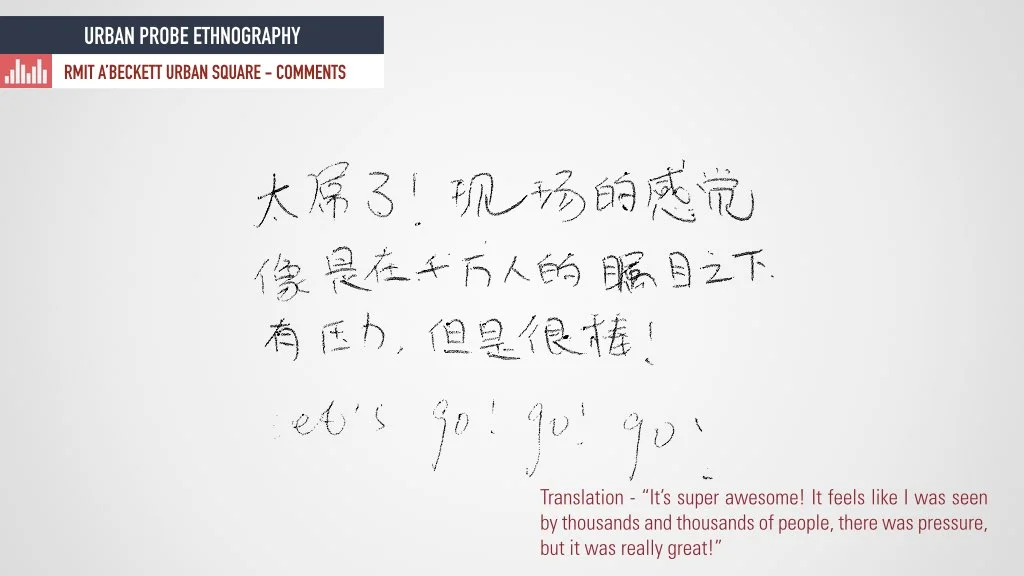 URBAN PROBE ETHNOGRAPHY
RMIT A'BECKETT URBAN SQUARE - COMMENTS
太屌了！现场的感觉
像是在千万人的瞩目之下.
有压力，但是很棒！
Let's go! go! go!
Translation - “It's super awesome! It feels like I was seen
by thousands and thousands of people, there was pressure,
but it was really great!”